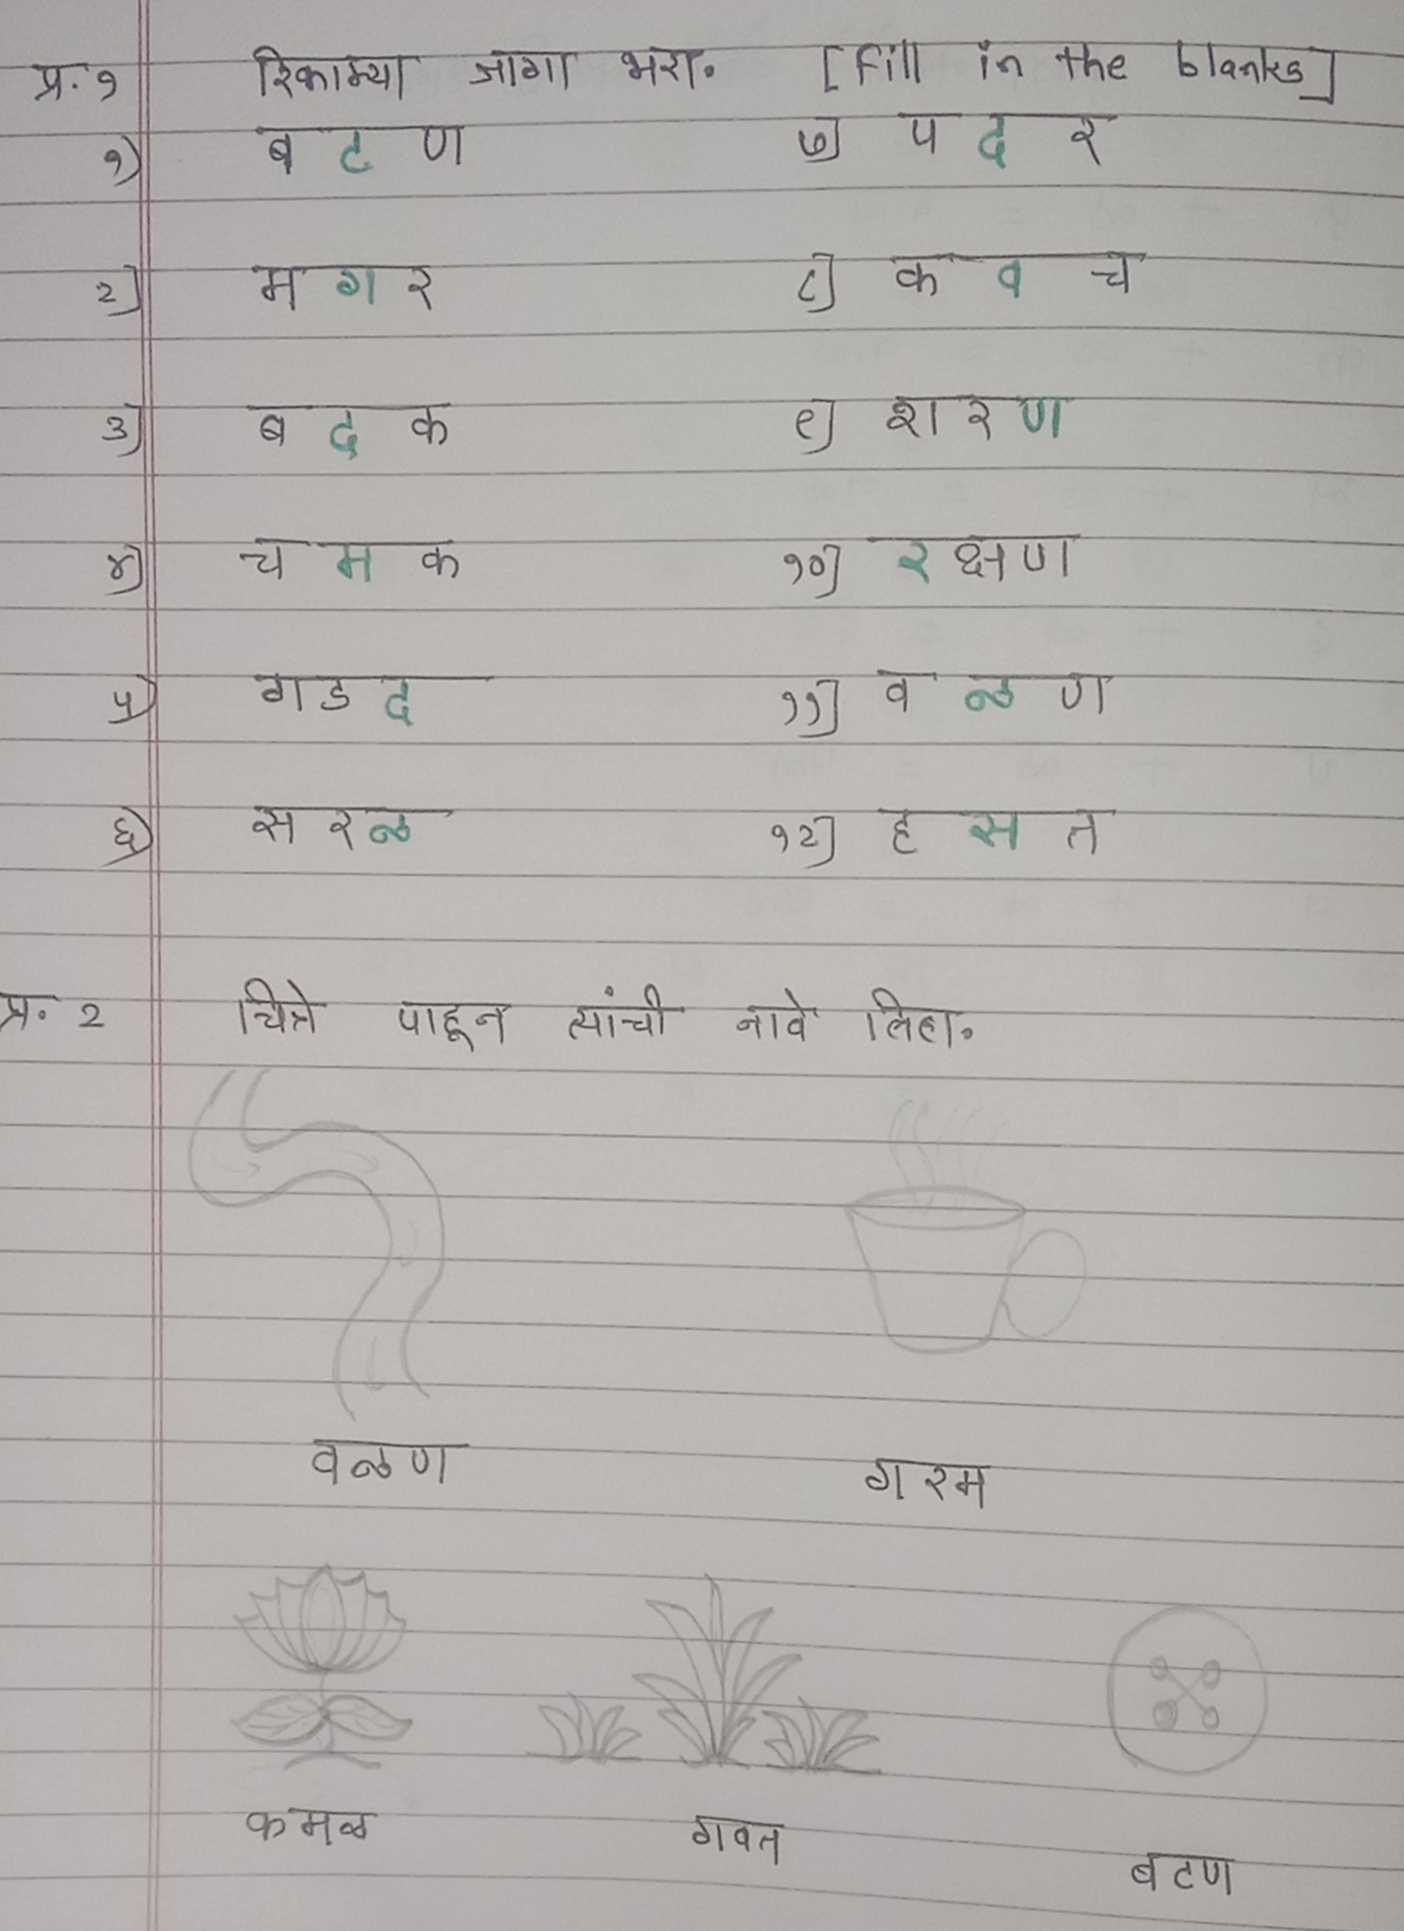 प्र. १ रिकाम्या जागा भरा. [Fill in the blanks]
१) ब ट ण ७] प द र
२] म ग र ८] क व च
३] ब द क ९] श र ण
४) च म क १०] र क्ष ण
५) ग ड द ११] व ळ ण
६) स र ळ १२] ह स त
प्र. २ चित्रे पाहून त्यांची नावे लिहा.
वळण गरम
कमळ गवत बटण